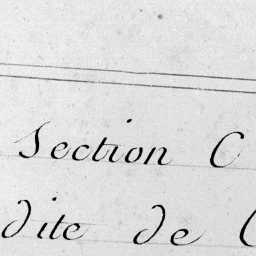 Section C
dite de